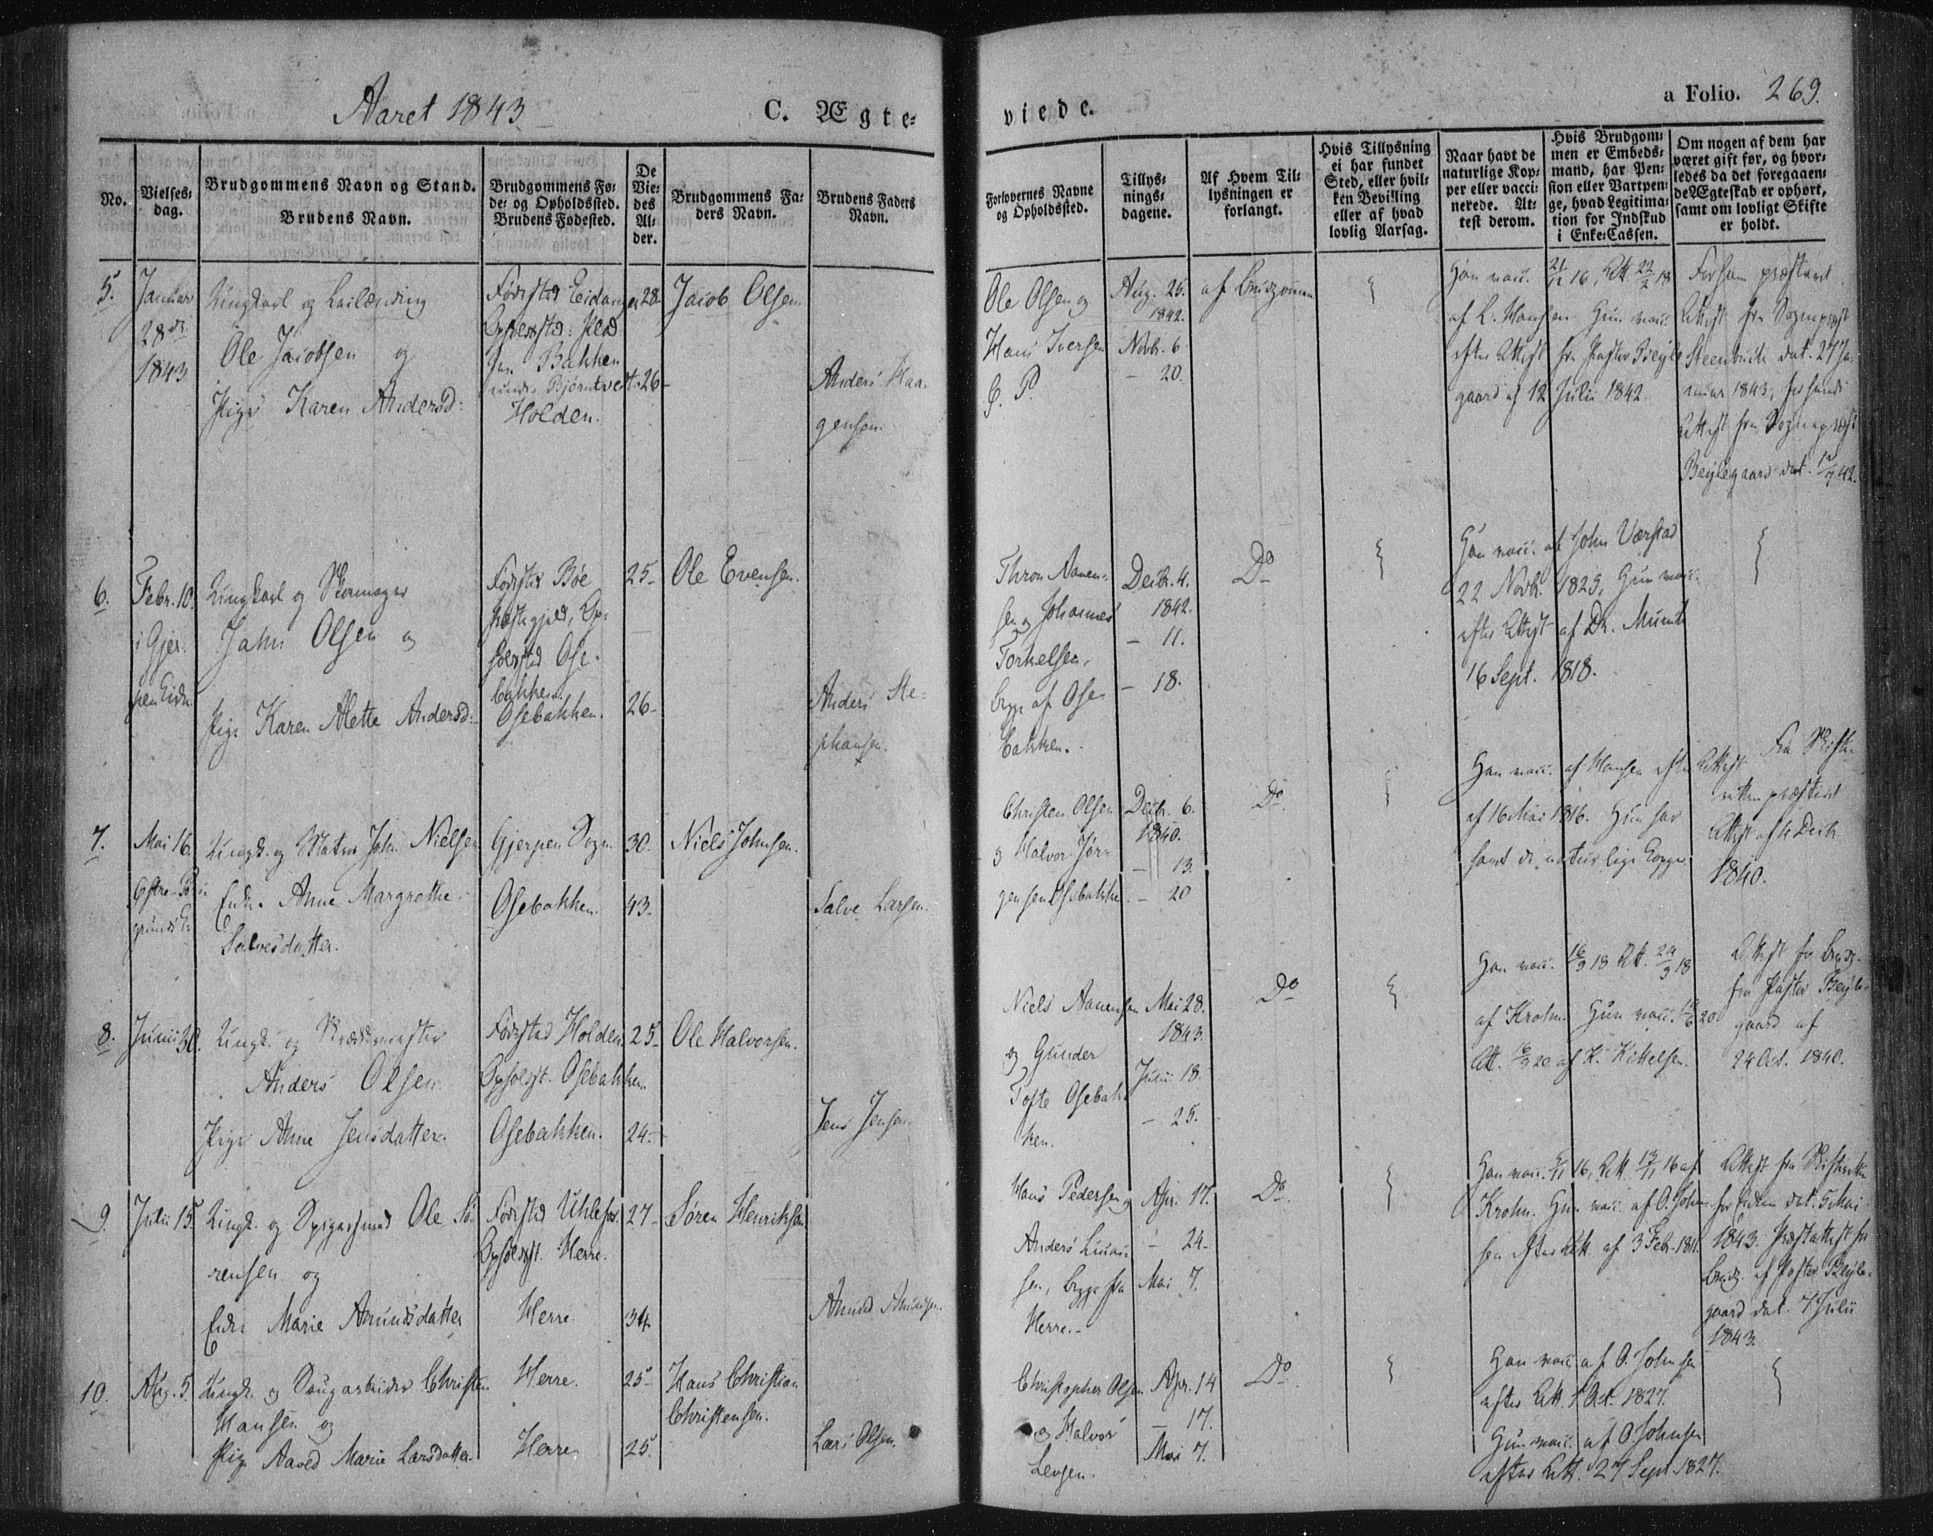 Aaret 1843
C. Ægte-
viede.
a Folio. 269.
No.
Vielses-
dag.
Brudgommens Navn og Stand.
Brudens Navn.
Brudgommens Fø-
de- og Opholdssted.
Brudens Fødested.
De
Vie-
des
Al-
der.
Brudgommens Fa-
ders Navn.
Brudens Faders
Navn.
Forlovernes Navne
og Opholdssted.
Tillys-
nings-
dagene.
Af Hvem Til-
lysningen er
forlangt.
Hvis Tillysning
ei har fundet
Sted, eller hvil-
ken Bevilling
eller af hvad
lovlig Aarsag.
Naar havt de
naturlige Kop-
per eller vacci-
nerede. At-
test derom.
Hvis Brudgom-
men er Embeds-
mand, har Pen-
sion eller Vartpen-
ge, hvad Legitima-
tion for Indskud
i Enke-Cassen.
Om nogen af dem har
været gift før, og hvor-
ledes da det foregaaen-
de Ægteskab er ophørt,
samt om lovligt Skifte
er holdt.
5.
Januar
28de
1843
Ungkarl og Leilænding
Ole Jacobsen og
Pige Karen Andersd:
Fødested Eidanger
Opholdssted:
Bakken
Bjørntvet
Holden.
28-
26-
Jacob Olsen
Anders Haa-
gensen.
Ole Olsen og
Hans Iversen
Aug. 26.
1842.
Novbr. 6
- 20.
af Brudgommen
Han vacc. 21/12 16, Att. 22/2 18
af L. Hansen. Hun vacc.
efter Attest fra Pastor Beyle-
gaard af 12 Julii 1842.
For ham præsteret
Attest fra Sognepræst
Steenbuch dat. 27 Ja-
nuar 1843, for hende
Attest fra Sognepræst
Beylegaard dat. 12/7 42.
6.
Febr. 10.
i Gjer-
pen Kirke
Ungkarl og Skomager
Jahn Olsen og
Pige Karen Alette Andersd:
Fødested Bøe
Præstegjeld, Op-
holdssted Ose-
bakken.
Osebakken.
25-
26-
Ole Evensen.
Anders Ste-
phansen.
Thron Aanen-
sen og Johannes
Torkelsen,
begge af Ose-
bakken.
Decbr. 4.
1842.
- 11.
- 18.
Do
Han vacc. af John Værstad
22 Novbr. 1825, Hun vacc.
efter Attest af Dr. Munch
16 Sept. 1818.
7.
Mai 16.
Østre-Pors-
grunds K.
Ungk. og Matros John Nielsen
Enke Anne Margrethe
Salvesdatter.
Gjerpen Sogn
Osebakken.
30.
43.
Niels Johnsen.
Salve Larsen.
Christen Olsen
og Halvor Jør-
gensen Osebakken
Decbr. 6.
1840.
- 13.
- 20
Do.
Han vacc. af Hansen efter Attest
af 16 Mai 1816. Hun har
havt de naturlige Kopper.
Fra Skifte-
retten præsteret
Attest af 4 Decbr
1840.
8.
Junii 30.
Ungk. og Skræddermester
Anders Olsen
Pige Anne Jensdatter.
Fødested Holden
Opholdst. Osebakken.
Osebakken.
25-
24-
Ole Halvorsen.
Jens Jensen.
Niels Aanensen
og Gunder
Tofte Osebak-
ken.
Mai 28.
1843.
Junii 18.
- 25.
Do
Han vacc. 16/9 18 Att. 24/9 18
af Krohn. Hun vacc. 10/6 20
Att. 18/9 20 af K. Kittelsen.
Attest for Brudg.
fra Pastor Beyle-
gaard af
24 Oct. 1840.
9.
Julii 15.
Ungk. og Spigersmed Ole Sø-
rensen og
Enke Marie Amundsdatter
Fødested Uhlefos.
Opholdst. Herre.
Herre.
27-
34.
Søren Henriksen
Amund Amundsen.
Hans Pedersen og
Anders
sen, begge fra
Herre.-
Apr. 17.
- 24.
Mai 7.
Do.
Han vacc. 5/11 16, Att. 13/11 16 af
Krohn. Hun vacc. af O. John-
sen efter Att. af 3 Febr. 1811.
Attest fra Skifteretten
for Enken dat. 5 Mai
1843. Præstattest for
Brudg. af Pastor Beyle-
gaard dat. 7 Julii
1843.
10.
Aug. 5.
Ungk. og Saugarbeider Christen
Hansen og
Pige Aaved Marie Larsdatter
Herre.
Herre
25-
25.
Hans Christian
Christensen.
Lars Olsen.
Christopher Olsen
og Halvor
Levsen.
Apr. 14
- 17.
Mai 7.
Do
Han vacc. af O. Johnsen
efter Att. 1 Oct. 1827.
Hun vacc. af O. Johnsen
efter Att. 27 Sept. 1827.